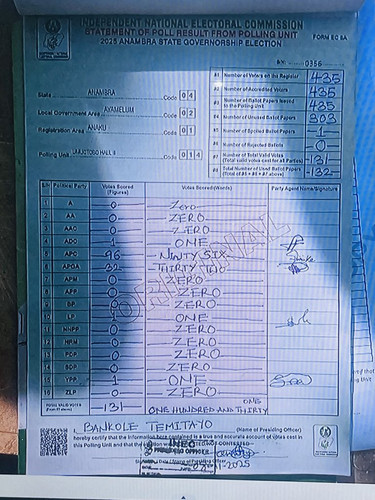 INDEPENDENT NATIONAL ELECTORAL COMMISSION
STATEMENT OF POLL RESULT FROM POLLING UNIT
2025 ANAMBRA STATE GOVERNORSHIP ELECTION
FORM EC 8A
0356
State ANAMBRA Code 04
Local Government Area AYAMELUM Code 02
Registration Area ANAKU Code 01
Polling Unit HALL II Code 014
#1 Number of Voters on the Register 435
#2 Number of Accredited Voters 435
#3 Number of Ballot Papers Issued to the Polling Unit 435
#4 Number of Unused Ballot Papers 303
#5 Number of Spoiled Ballot Papers 1
#6 Number of Rejected Ballots 0
#7 Number of Total Valid Votes (Total valid votes cast for all Parties) 131
#8 Total Number of Used Ballot Papers (Total of #5 + #6 + #7 above) 132
S/N Political Party Votes Scored (Figures) Votes Scored (Words) Party Agent Name/Signature
1 A 0 Zero
2 AA 0 ZERO
3 AAC 0 ZERO
4 ADC 1 ONE
5 APC 96 NINTY SIX
6 APGA 32 THIRTY TWO
7 APM 0 ZERO
8 APP 0 ZERO
9 BP 0 ZERO
10 LP 1 ONE
11 NNPP 0 ZERO
12 NRM 0 ZERO
13 PDP 0 ZERO
14 SDP 0 ZERO
15 YPP 1 ONE
16 ZLP 0 ZERO
TOTAL VALID VOTES 131 ONE HUNDRED AND THIRTY ONE
ORIGINAL
I, BANKOLE TEMITAYO (Name of Presiding Officer)
hereby certify that the information here contained is a true and accurate account of votes cast in
this Polling Unit and that the election was NOT CONTESTED
INEC
PRESIDING OFFICER
2025